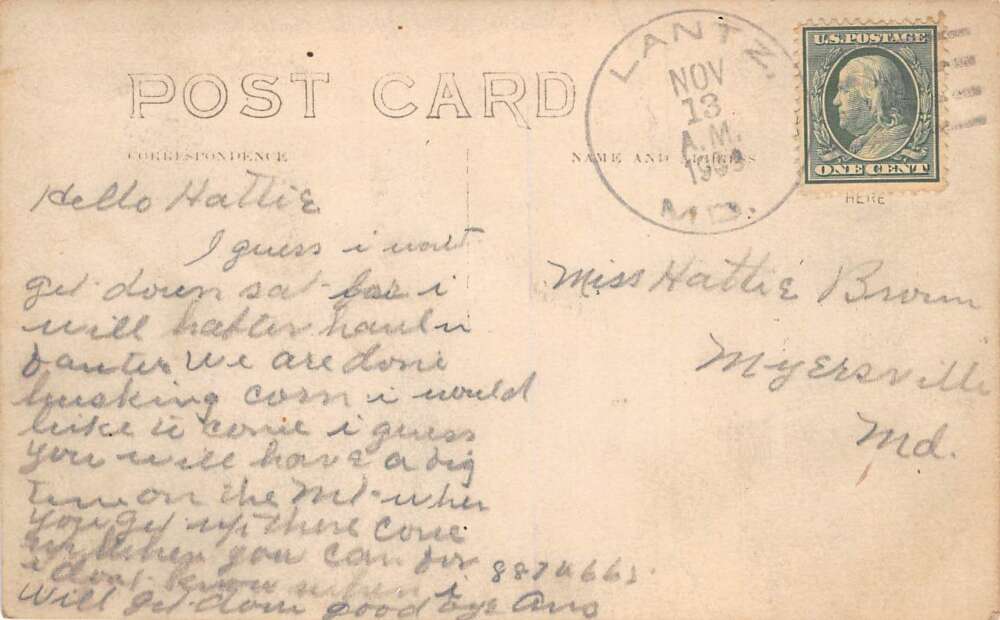 POST CARD
CORRESPONDENCE
NAME AND ADDRESS
HERE
LANTZ,
NOV
13
A.M.
1909
MD.
U.S. POSTAGE
ONE CENT
Hello Hattie
I guess i wont
get down sat i
will hafter haul
We are done
husking corn i would
like to come i guess
you will have a big
time on the Mt when
you get up there come
up when you can for
i dont know when i
will get down good bye Ans
Miss Hattie Brown
Myersville
Md.